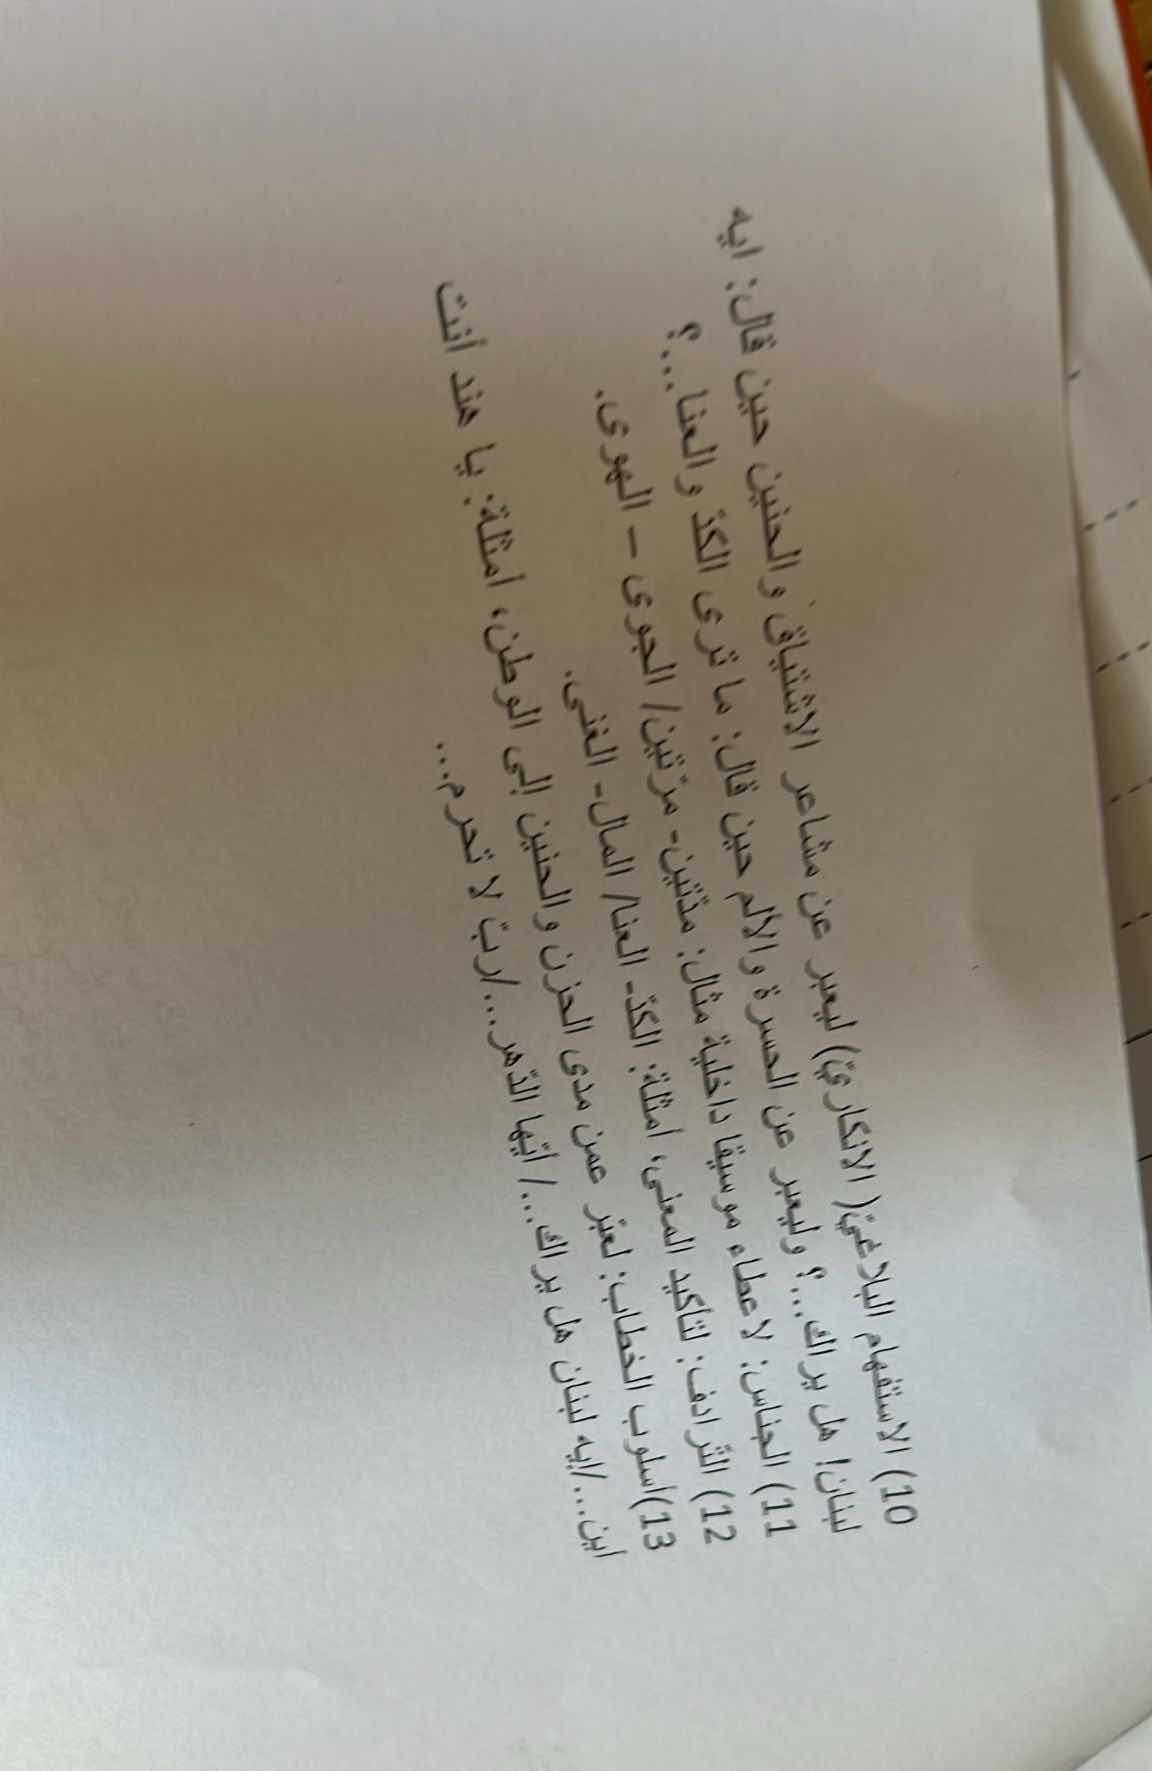 10) الاستفهام البلاغيّ( الانكاريّ) ليعبر عن مشاعر الاشتياق والحنين حين قال: ايه
لبنان! هل يراك...؟ وليعبر عن الحسرة والألم حين قال: ما ترى الكدّ والعنا...؟
11) الجناس: لاعطاء موسيقا داخلية مثال: مدّتين- مرّتين/ الجوى – الهوى.
12) التّرادف: لتأكيد المعنى، أمثلة: الكدّ- العنا/ المال- الغنى.
13)أسلوب الخطاب: لعبّر عمن مدى الحزن والحنين إلى الوطن، أمثلة: يا هند أنت
أين.../إيه لبنان هل يراك.../ أيّها الدّهر.../ربّ لا تحرم...